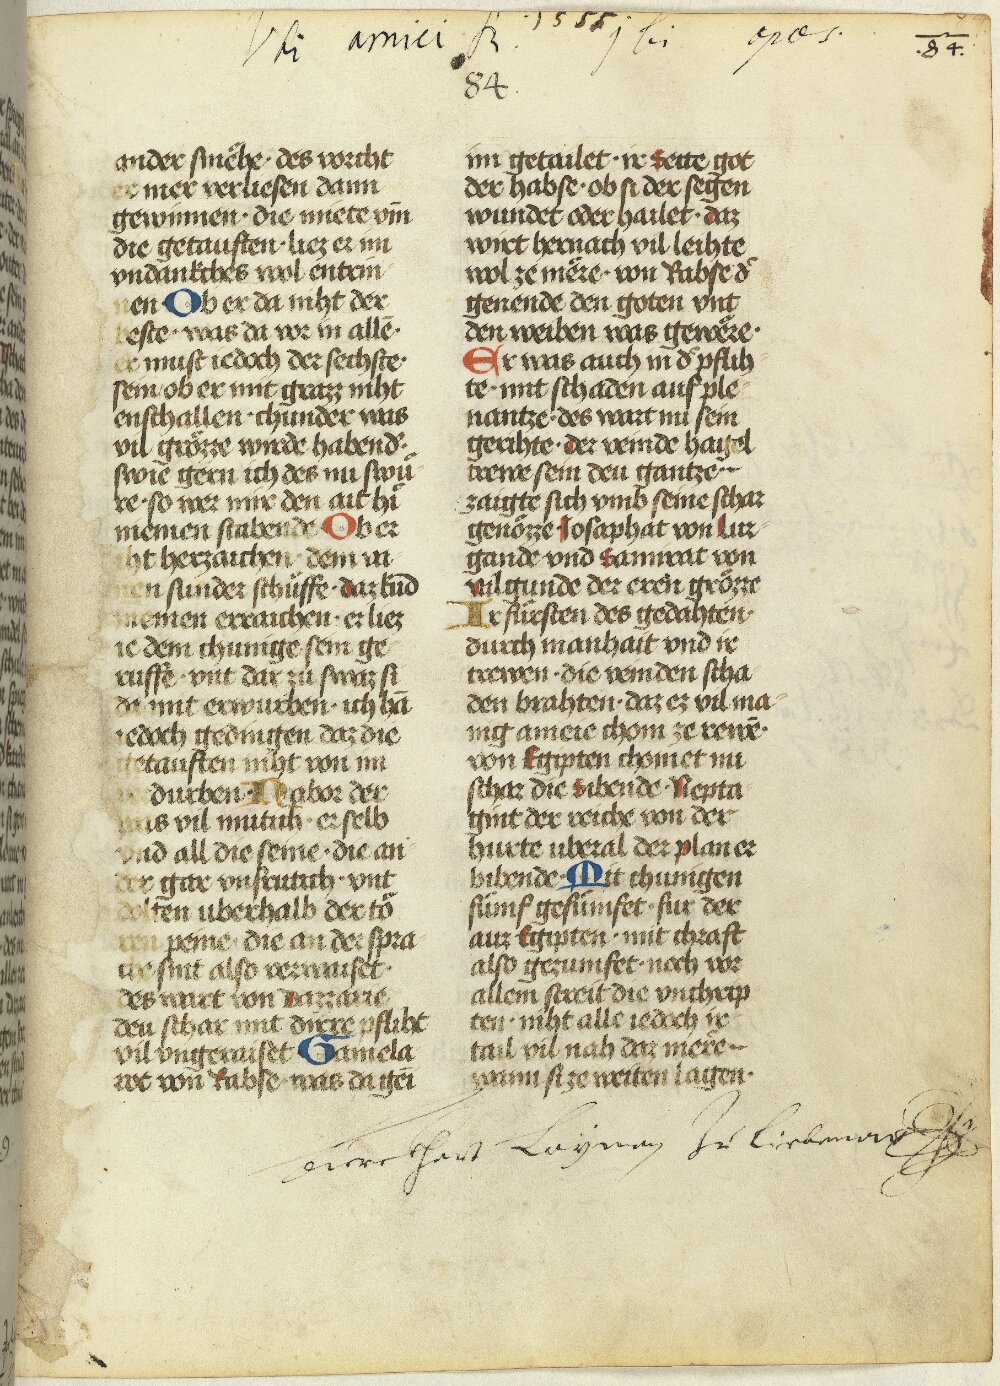 Vbi amici ibi opes
1555
84
84
ander smehe· des vorcht
er mer verliesen dann
gewinnen· die miete vm̄
die getauften· liez er im
vndankches wol entrin
nen Ob er da niht der
beste· was da vor in allē·
er must iedoch der sechste·
sein ob er mit gratz niht
enschallen· chunder was
vil grözze wirde habend·
swie gern ich des nu swu
re· so wer mir den ait hi
niemen stabende Ob er
iht herzaichen· dem
nen sunder schüffe· daz kūd
niemen erraichen· er liez
ie dem chunige sein ge
ruffe· vnt dar zu swaz si
da mit erwurben· ich hā
iedoch gedingen daz die
getauften niht von im
verdurben· Nabor der
was vil mutich· er selb
vnd all die seine· die an
der gar vnfrutich· vnt
dolten uberhalb der tö
ren peine· die an der spra
che sint also verwaiset·
des wart von Narratie
deu schar mit dirre pfliht
vil vngeraiset Gamela
rot von Kabse· was da gen
im getailet· ir sette got
der habse· ob si der segen
wundet oder hailet· daz
wirt hernach vil leihte
wol ze mere· von Kabse d
genende den goten vnt
den weiben was gewere·
Er was auch in d pflih
te· mit schaden auf ple
nantze· des wart im sein
gerihte· der veinde hagel
trewe sein deu gantze
zaigte sich vmb seine schar
genözze Josaphat von Lur
gande vnd tamrat von
vilgunde der eren grözze
Ir fürsten des gedahten·
durch manhait vnd ir
trewen· die veinden scha
den brahten· daz ez vil ma
nig ameie chom ze rewē·
von Egipten chomet nu
schar die sibende· Nepta
gint der reiche von der
hurte uberal der plan er
bibende· Mit chunigen
fümf gefümfet· fur der
auz Egipten· mit chraft
also gezumfet· noch vor
allem streit die vncherp
ten· niht alle iedoch ir
tail vil nah daz mere
wann si ze weiten lagen·